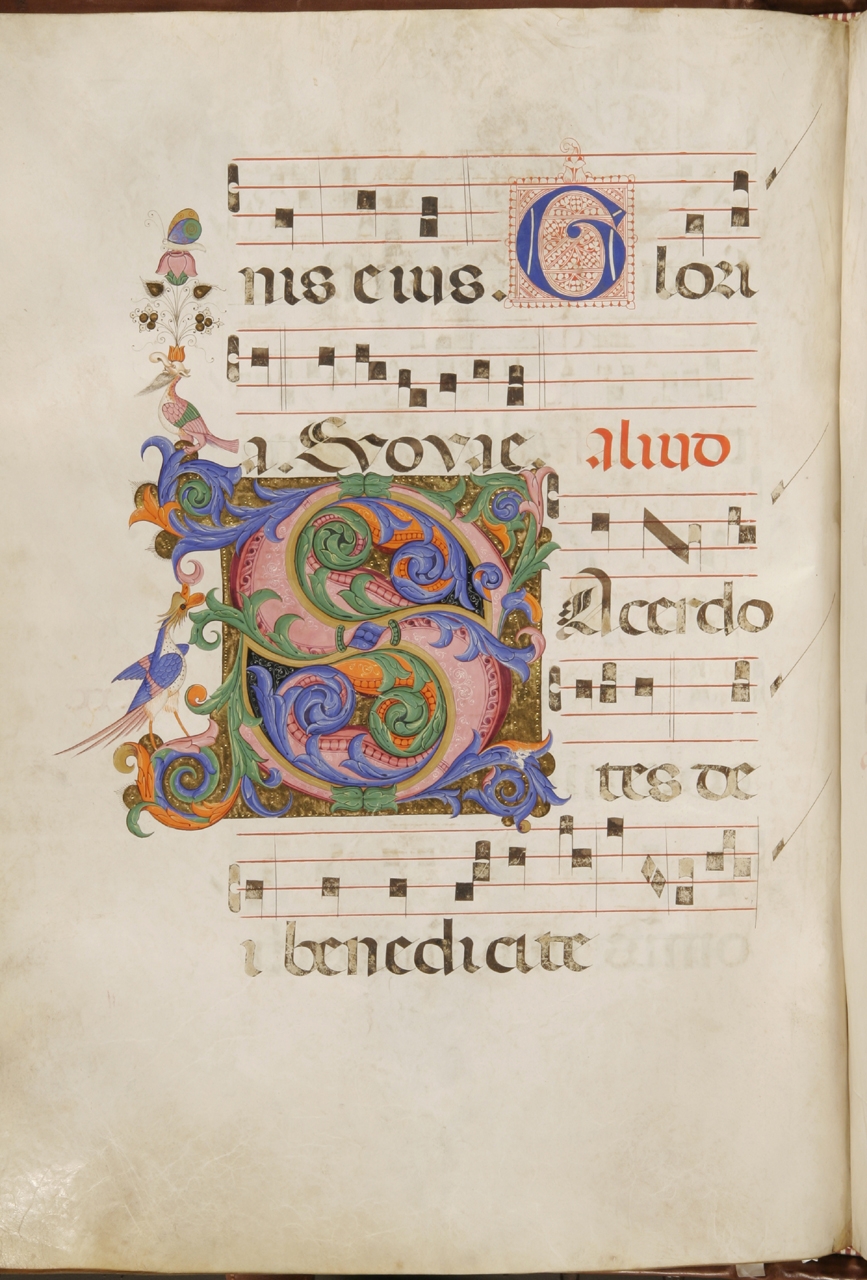 nis eius. Glori
a. Seovae. aliud
SAcerdo
tes de
i benedicite